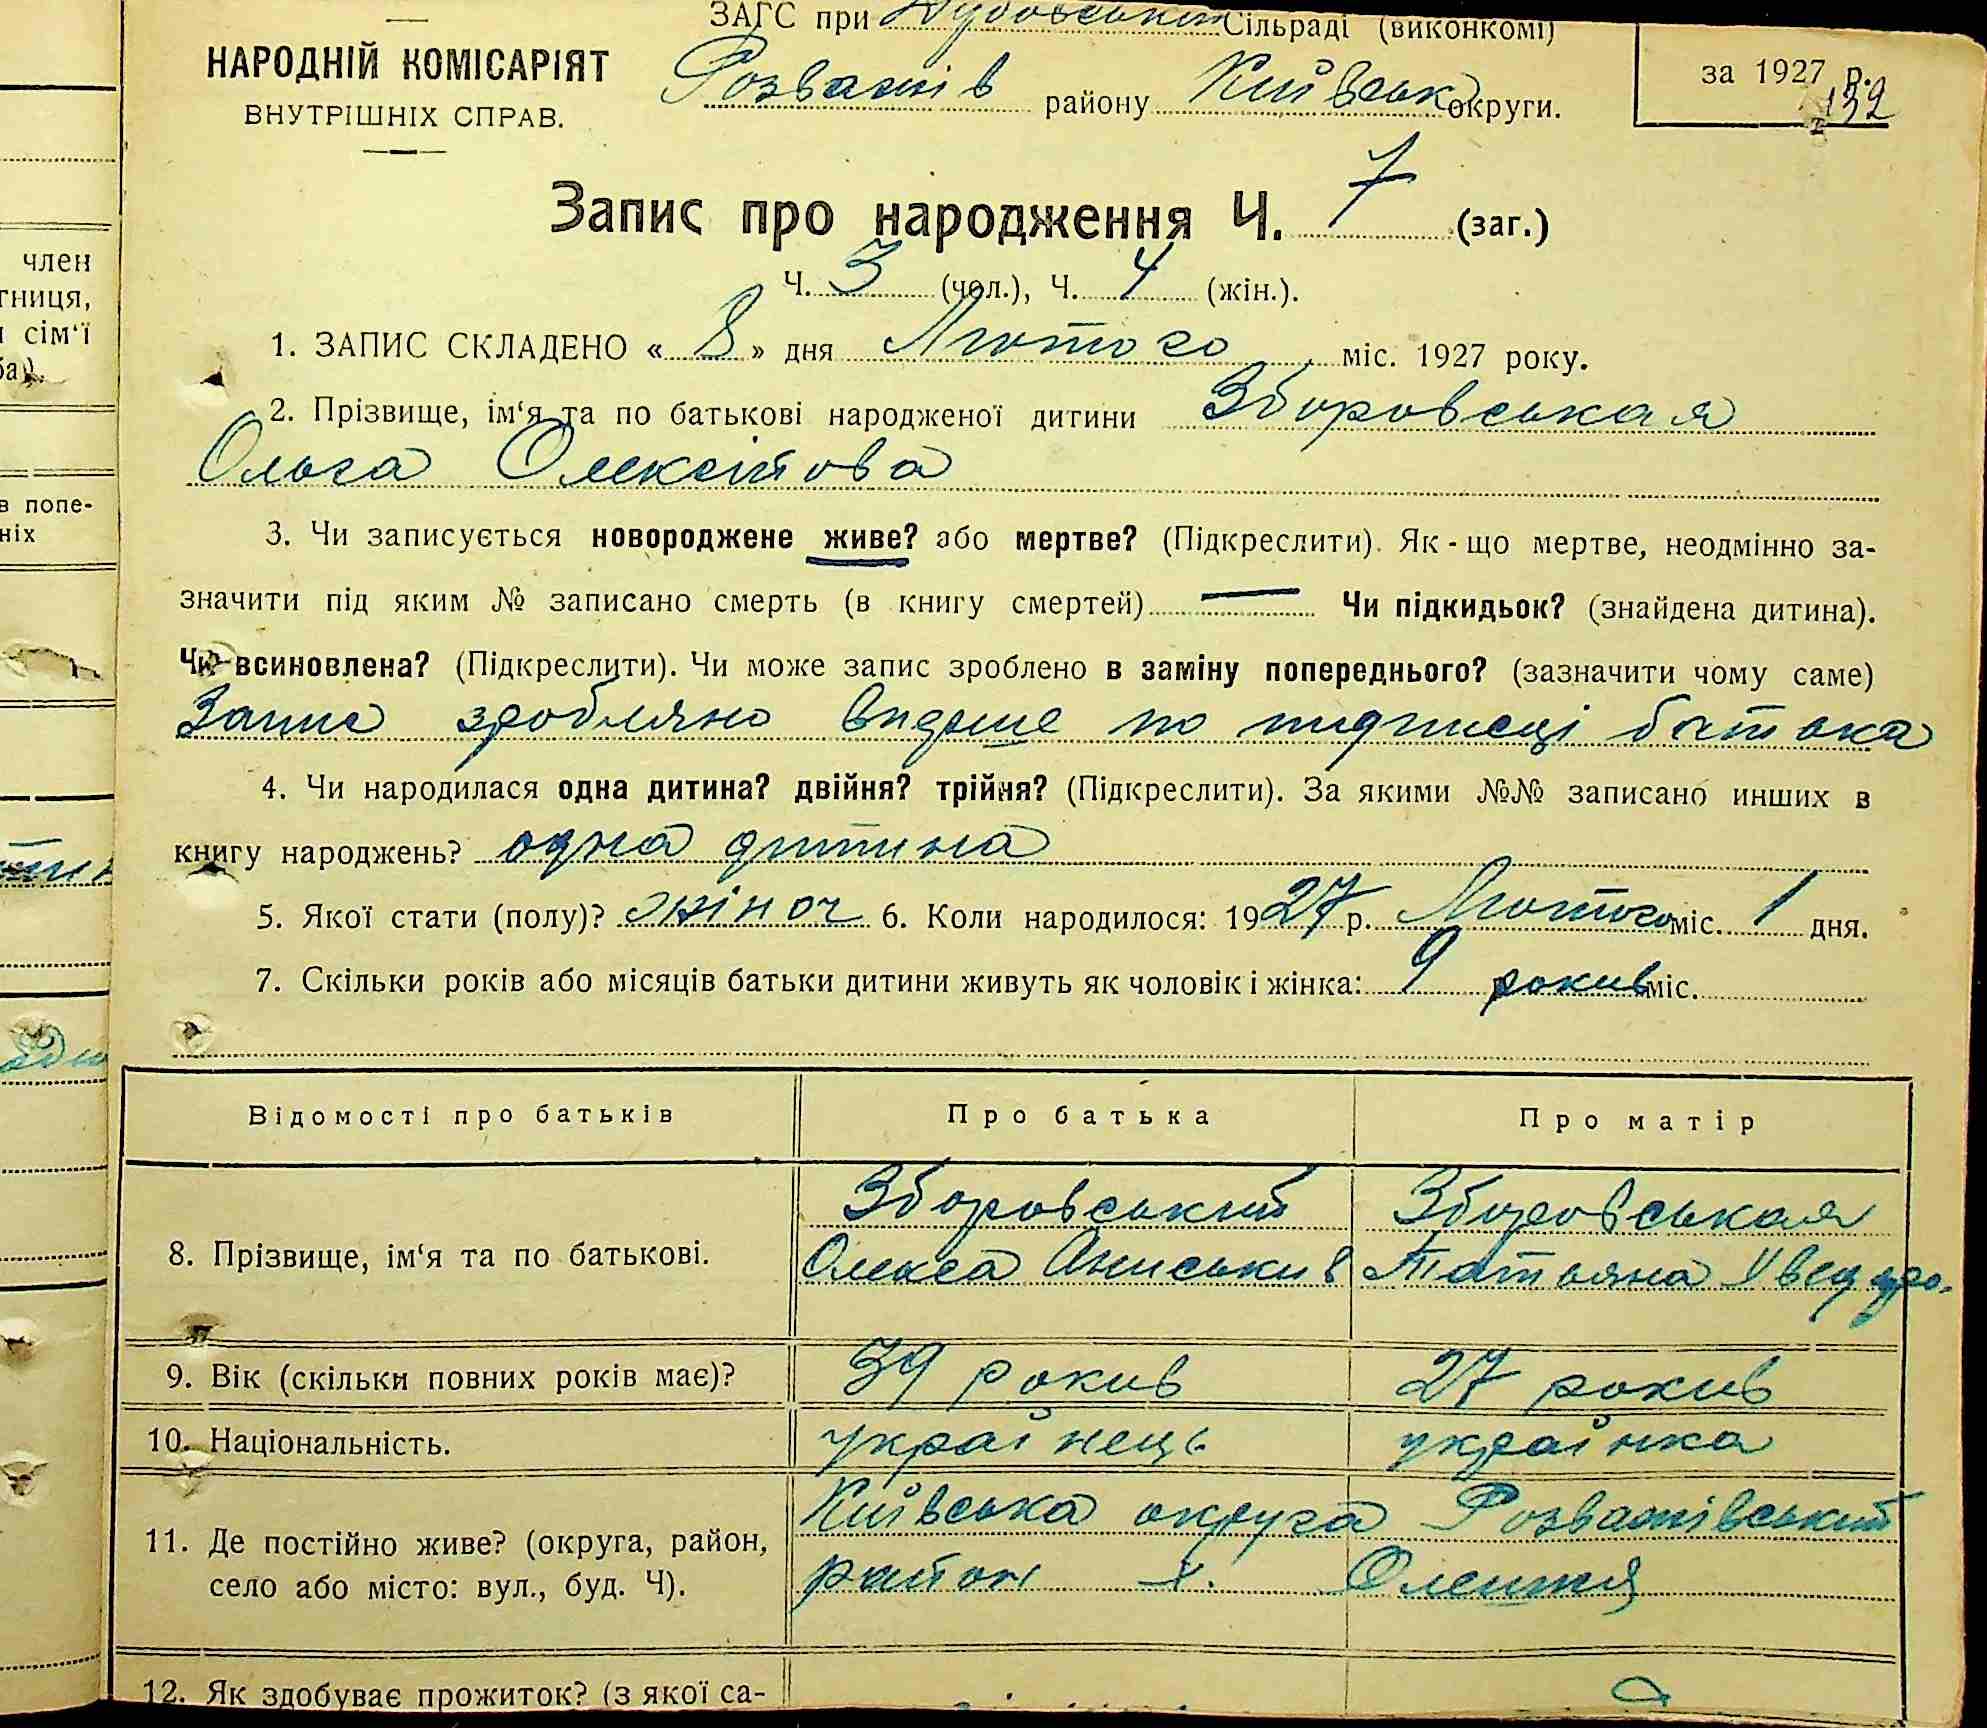 ЗАГС при Сільраді (виконкомі)
НАРОДНІЙ КОМІСАРІЯТ
ВНУТРІШНІХ СПРАВ.
Розважів району Київськ округи.
за 1927 р.
132
Запис про народження Ч. 7 (заг.)
Ч. 3 (чол.), Ч. 4 (жін.).
1. ЗАПИС СКЛАДЕНО « 8 » дня Лютого міс. 1927 року.
2. Прізвище, ім‘я та по батькові народженої дитини Зборовськая
Ольга Олексійова
3. Чи записується новороджене живе? або мертве? (Підкреслити). Як-що мертве, неодмінно за-
значити під яким № записано смерть (в книгу смертей) — Чи підкидьок? (знайдена дитина).
Чи всиновлена? (Підкреслити). Чи може запис зроблено в заміну попереднього? (зазначити чому саме)
Запис зробляно вперше по подписці батька
4. Чи народилася одна дитина? двійня? трійня? (Підкреслити). За якими №№ записано инших в
книгу народжень? одна дитина
5. Якої стати (полу)? жіноч 6. Коли народилося: 1927 р. Лютого міс. 1 дня.
7. Скільки років або місяців батьки дитини живуть як чоловік і жінка: 9 рокив міс.
Відомості про батьків Про батька Про матір
8. Прізвище, ім‘я та по батькові.
Зборовський Зборовськая
Олекса Аниськив Татьяна
9. Вік (скільки повних років має)? 39 рокив 27 рокив
10. Національність. українець українка
11. Де постійно живе? (округа, район,
село або місто: вул., буд. Ч).
Київська округа Розважівський
район х.
12. Як здобуває прожиток? (з якої са-
член
тниця,
сім‘ї
ба).
в попе-
ніх